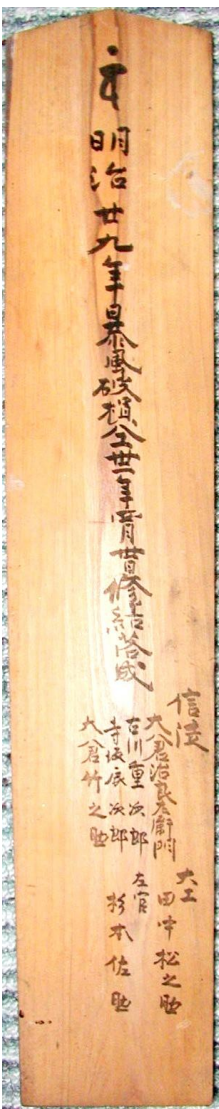 明治廿九年暴風破損仝丗一年修結落成
信徒
大倉治良左衛門
古川重次郎
寺坂辰次郎
大倉竹之助
大工
田中松之助
左官
杉本佐助